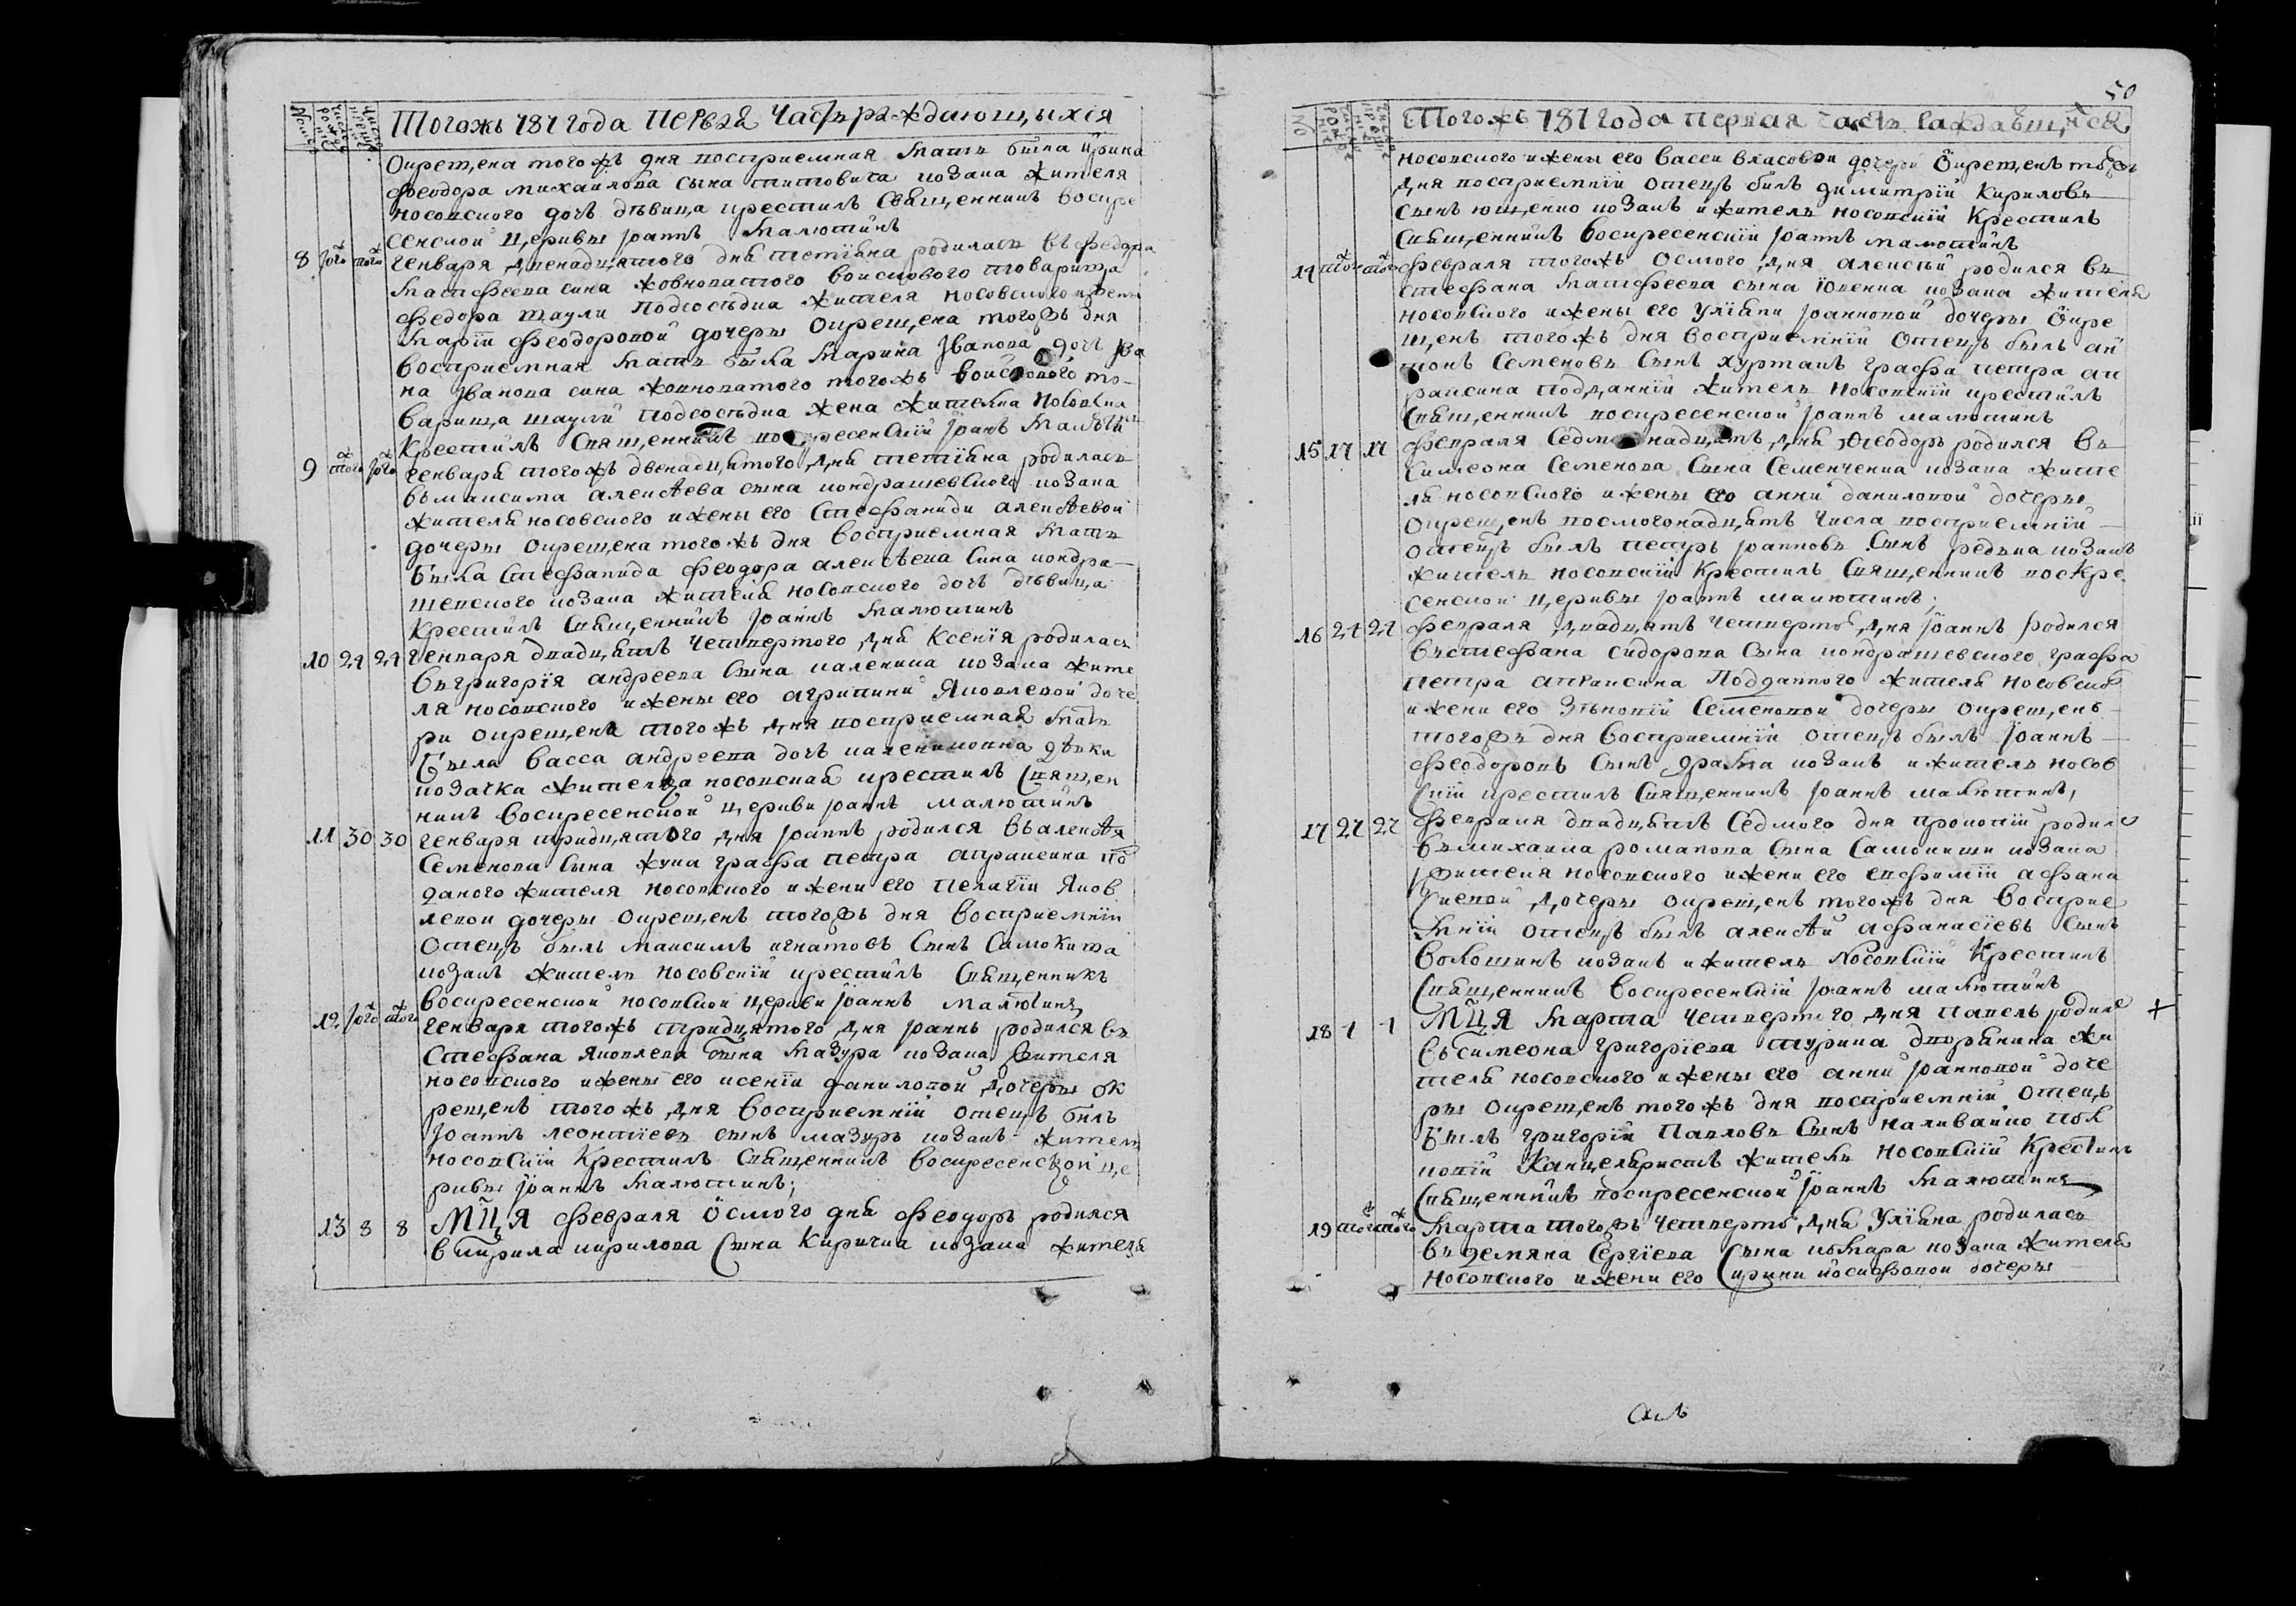 Тогожъ 787 года первая часть раждающихся
Окрещена того жъ дня восприемная мать была ирина
феодора михаилова сына титовича козака жителя
носовского дочъ дѣвица крестилъ Священникъ воскре
сенской Церквы Іоаннъ Малютинъ
8 того того Генваря двенадцятого дня тетіяна родилась въ федора
Матфеева сина жовноватого воискового товарища
федора шаули подсосѣдка жителя носовского и жены
Маріи феодоровой дочеры окрещена тогожъ дня
восприемная мать была Марина Іванова дочъ Ива
на Іванова сина жовноватого тогожъ воискового то-
варища шаули подсосѣдка жена жителка носовска
Крестилъ Священникъ воскресенскій Іоанъ Малютин
9 того того Генваря тогожъ двенадцятого дня тетіяна родилась
въ максима алексѣева сына кондрашевского козака
жителя носовского и жены его Стефаниди алексѣевой
дочеры окрещена того жъ дня восприемная мать
была Стефанида феодора алексѣева Сина кондра-
шевского козака жителя носовского дочъ дѣвица
Крестилъ Священникъ Іоаннъ Малютинъ
10 24 24 Генваря двадцять четвертого дня Ксенія родилась
въ григорія андреева Сына каленика козака жите
ля носовского и жены его агрипини Яковлевой доче
ри окрещена тогожъ дня восприемная мать
была васса андреева дочъ каленикоина дѣвка
козачка жителка носовская крестилъ Священ
никъ воскресенской церкви Іоаннъ Малютинъ
11 30 30 Генваря тридцятого дня Іоаннъ родился въ алексѣя
Семенова Сына жука графа петра апраксина по
даного жителя носовского и жени его пелагіи Яков
левои дочеры окрещенъ тогожъ дня восприемніи
отецъ былъ максимъ игнатовъ Сынъ Самокита
козакъ житель носовскій крестилъ Священникъ
воскресенской носовской церкви Іоаннъ Малютинъ
12 того того Генваря тогожъ тридцятого дня Іоаннъ родился въ
Стефана Яковлева сына Мазура козака жителя
носовского и жены его ксеніи даниловой дочеры ок
рещенъ тогожъ дня восприемній отецъ былъ
Іоаннъ леонтіевъ сынъ мазуръ козакъ житель
носовскіи Крестилъ Священникъ воскресенской це
рквы Іоаннъ Малютинъ;
13 8 8 МЦЯ февраля осмого дня феодоръ родился
в кирила кирилова Сына Киричка козака жителя
50
Тогожъ 787 года первая часть раждавшихся
носовского и жены его васси власовои дочери Окрещенъ тогожъ
дня восприемніи отецъ былъ димитрій Кириловъ
сынъ ющенко козакъ и житель носовскіи Крестилъ
Священникъ воскресенскіи Іоаннъ малютинъ
14 того того февраля тогожъ осмого дня алексѣй родился въ
Стефана Матфеева сына Ювенка козака жителя
носовского и жены его Уліяни Іоанновой дочеры Окре
щенъ тогожъ дня восприемніи отецъ былъ ан
тонъ Семеновъ Сынъ хурманъ графа петра ап
раксина подданній житель носовскіи крестилъ
Священникъ воскресенской Іоаннъ малютинъ
15 17 17 февраля Седмонадцять дня феодоръ родился въ
Симеона Семенова Сына Семенченка козака жите
ля носовского и жены его анни даниловой дочеры
окрещенъ восмогонадцять числа восприемніи
отецъ былъ петръ Іоанновъ Сынъ редька козакъ
житель носовскіи Крестилъ Священникъ воскре
сенской церквы Іоаннъ малютинъ;
16 24 24 февраля двадцять четвертого дня Іоаннъ родился
въ Стефана сидорова Сына кондрашевского графа
петра апраксина Подданного жителя носовского
и жени его Зѣновіи Семеновой дочеры окрещенъ
тогожъ дня восприемніи отецъ былъ Іоаннъ
феодоровъ Сынъ драма козакъ и житель носов
скіи крестилъ Священникъ Іоаннъ малютинъ,
17 27 27 февраля двадцять Седмого дня прокопіи родился
въ михаила романова Сына Самокиши козака
жителя носовского и жени его евфиміи афана
сиевой дочеры окрещенъ тогожъ дня восприе
мніи отецъ былъ алексѣй афанасіевъ Сынъ
волошинъ козакъ и житель Носовскіи Крестилъ
Священникъ воскресенскіи Іоаннъ малютинъ
18 4 4 МЦЯ Марта четвертого дня павелъ родилс +
въ симеона григоріева турика дворянина жи
теля носовского и жены его анни Іоанновой доче
ры окрещенъ тогожъ дня восприемніи отецъ
былъ григоріи Павловъ Сынъ наливайко пол
ковіи Канцеляристъ житель носовскіи Крестилъ
Священникъ воскресенской Іоаннъ Малютинъ
19 того того Марта тогожъ четвертого дня Уліяна родилась
въ демяна Сергіева Сына козака жителя
носовского и жени его ирини иосифовои дочеры